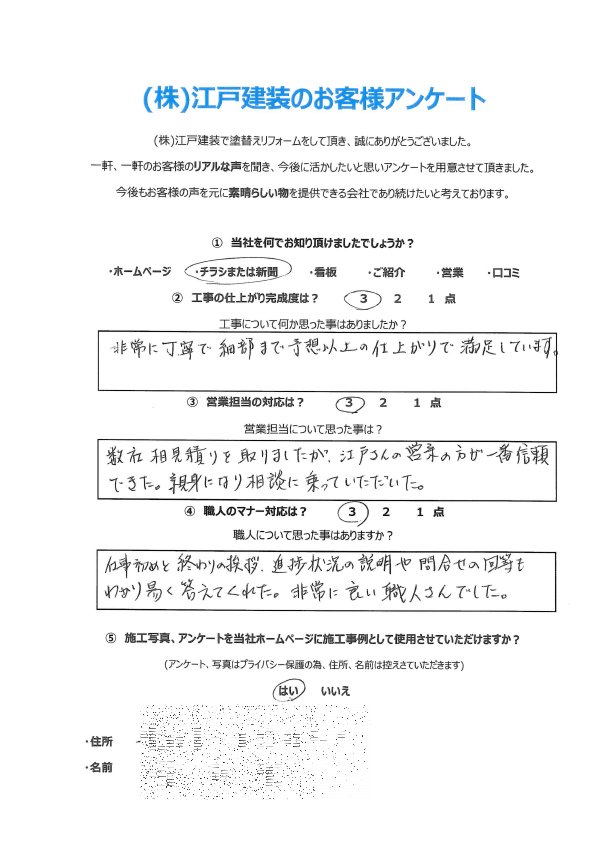 (株)江戸建装のお客様アンケート
(株)江戸建装で塗替えリフォームをして頂き、誠にありがとうございました。
一軒、一軒のお客様のリアルな声を聞き、今後に活かしたいと思いアンケートを用意させて頂きました。
今後もお客様の声を元に素晴らしい物を提供できる会社であり続けたいと考えております。
① 当社を何でお知り頂けましたでしょうか？
・ホームページ ・チラシまたは新聞 ・看板 ・ご紹介 ・営業 ・口コミ
② 工事の仕上がり完成度は？ 3 2 1 点
工事について何か思った事はありましたか？
非常に丁寧で細部まで予想以上の仕上がりで満足しています。
③ 営業担当の対応は？ 3 2 1 点
営業担当について思った事は？
数社相見積りを取りましたが、江戸さんの営業の方が一番信頼
できた。親身になり相談に乗っていただいた。
④ 職人のマナー対応は？ 3 2 1 点
職人について思った事はありますか？
仕事初めと終わりの挨拶、進捗状況の説明や問合せの回答も
わかり易く答えてくれた。非常に良い職人さんでした。
⑤ 施工写真、アンケートを当社ホームページに施工事例として使用させていただけますか？
(アンケート、写真はプライバシー保護の為、住所、名前は控えさせていただきます)
はい いいえ
・住所
・名前